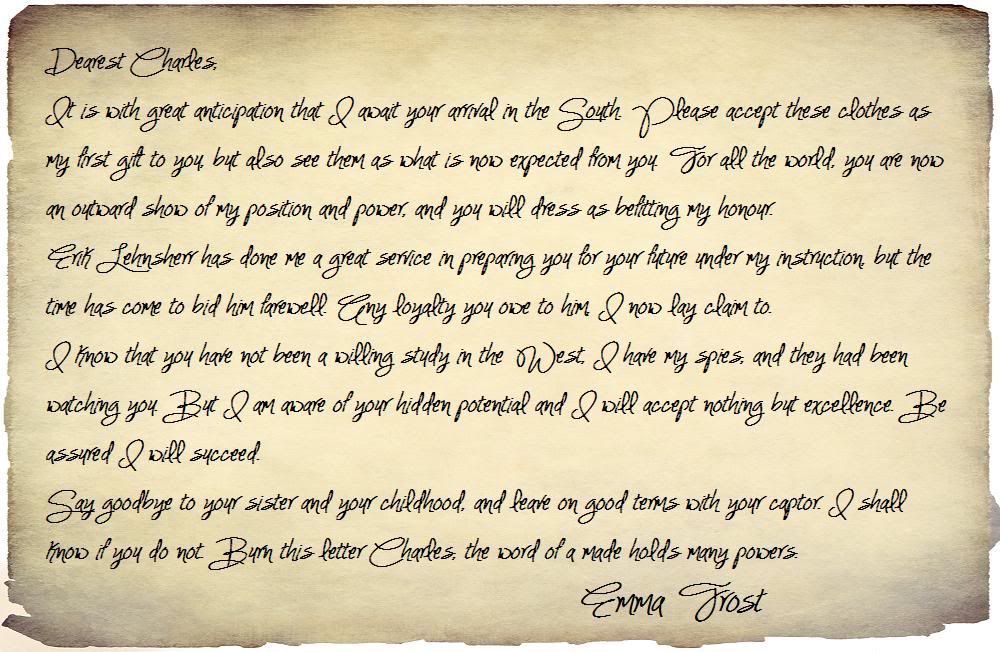 Dearest Charles,
It is with great anticipation that I await your arrival in the South. Please accept these clothes as
my first gift to you, but also see them as what is now expected from you. For all the world, you are now
an outward show of my position and power, and you will dress as befitting my honour.
Erik Lehnsherr has done me a great service in preparing you for your future under my instruction, but the
time has come to bid him farewell. Any loyalty you owe to him, I now lay claim to.
I know that you have not been a willing study in the West, I have my spies, and they had been
watching you. But I am aware of your hidden potential and I will accept nothing but excellence. Be
assured I will succeed.
Say goodbye to your sister and your childhood, and leave on good terms with your captor. I shall
know if you do not. Burn this letter Charles, the word of a made holds many powers.
Emma Frost